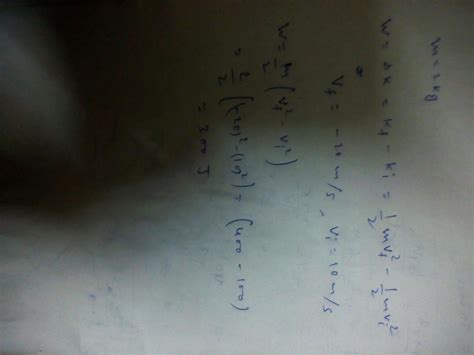 m = 2 kg
w = Δk = kf - ki = 1/2 mvf² - 1/2 mvi²
vf = -20 m/s, vi = 10 m/s
w = m/2 (vf² - vi²)
= 2/2 ((-20)² - (10)²) = (400 - 100)
= 300 J